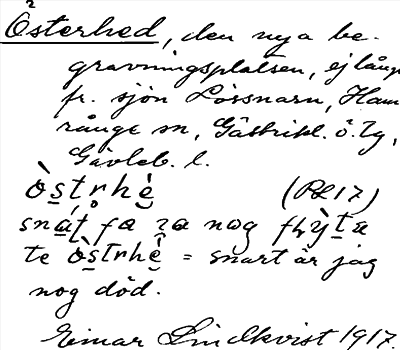 Österhed, den nya be-
gravningsplatsen, ej långt
fr. sjön Lössnarn, Ham
rånge sn, Gästrikl. ö. tg,
Gävleb. l.
òstrhè (RL17)
snát fa ra nog flỳta
te òstrhê = snart är jag
nog död.
Einar Lindkvist 1917.